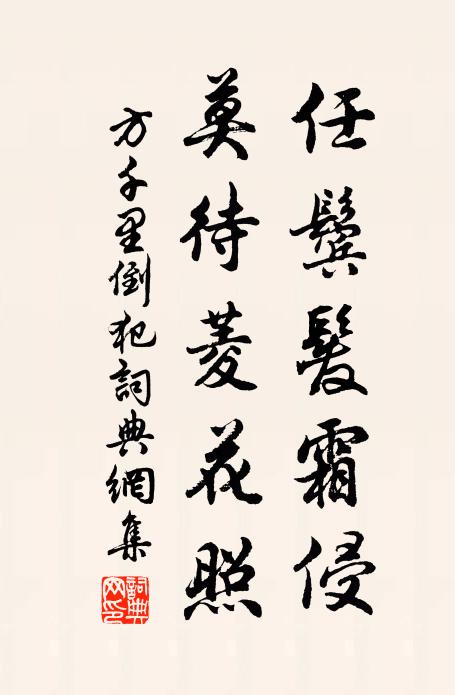 任鬓髮霜侵
莫待菱花照
方千里倒犯詞典網集
詞典网印